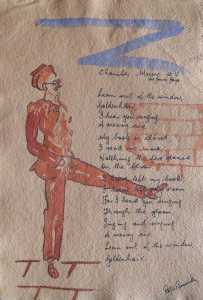 Chamber Music No V
by James Joyce
Lean out of the window,
Goldenhair,
I hear you singing
A merry air.
My book is closed,
I read no more,
Watching the fire dance
On the floor.
I have left my book,
I have left my room
For I heard you singing
Through the gloom,
Singing and singing
A merry air.
Lean out of the window,
Goldenhair.